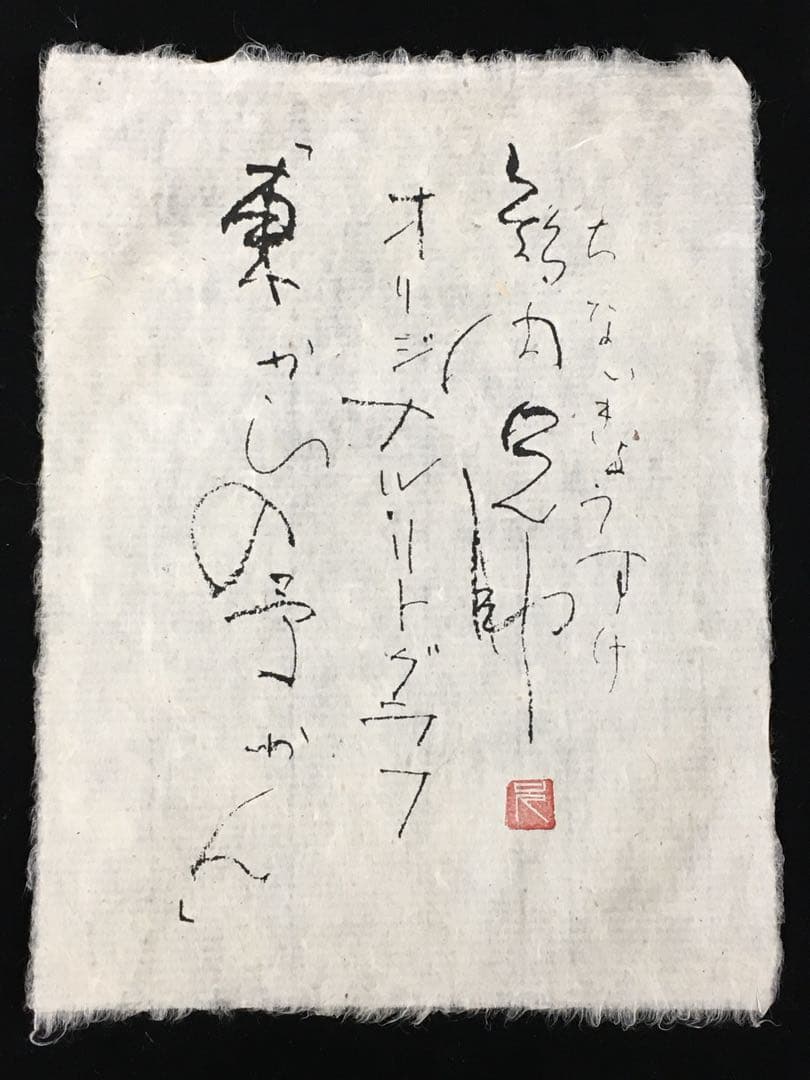 ちないきょうすけ
智内兄助
オリジナル・リトグラフ
「東からの予かん」